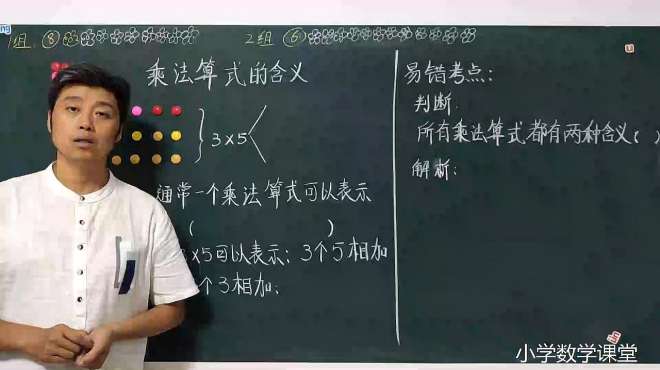 1组 ⑧
2组 ⑥
乘法算式的含义
3×5
通常一个乘法算式可以表示
( )
×5可以表示：3个5相加
个3相加.
易错考点：
判断
所有乘法算式都有两种含义( )
解析：
小学数学课堂